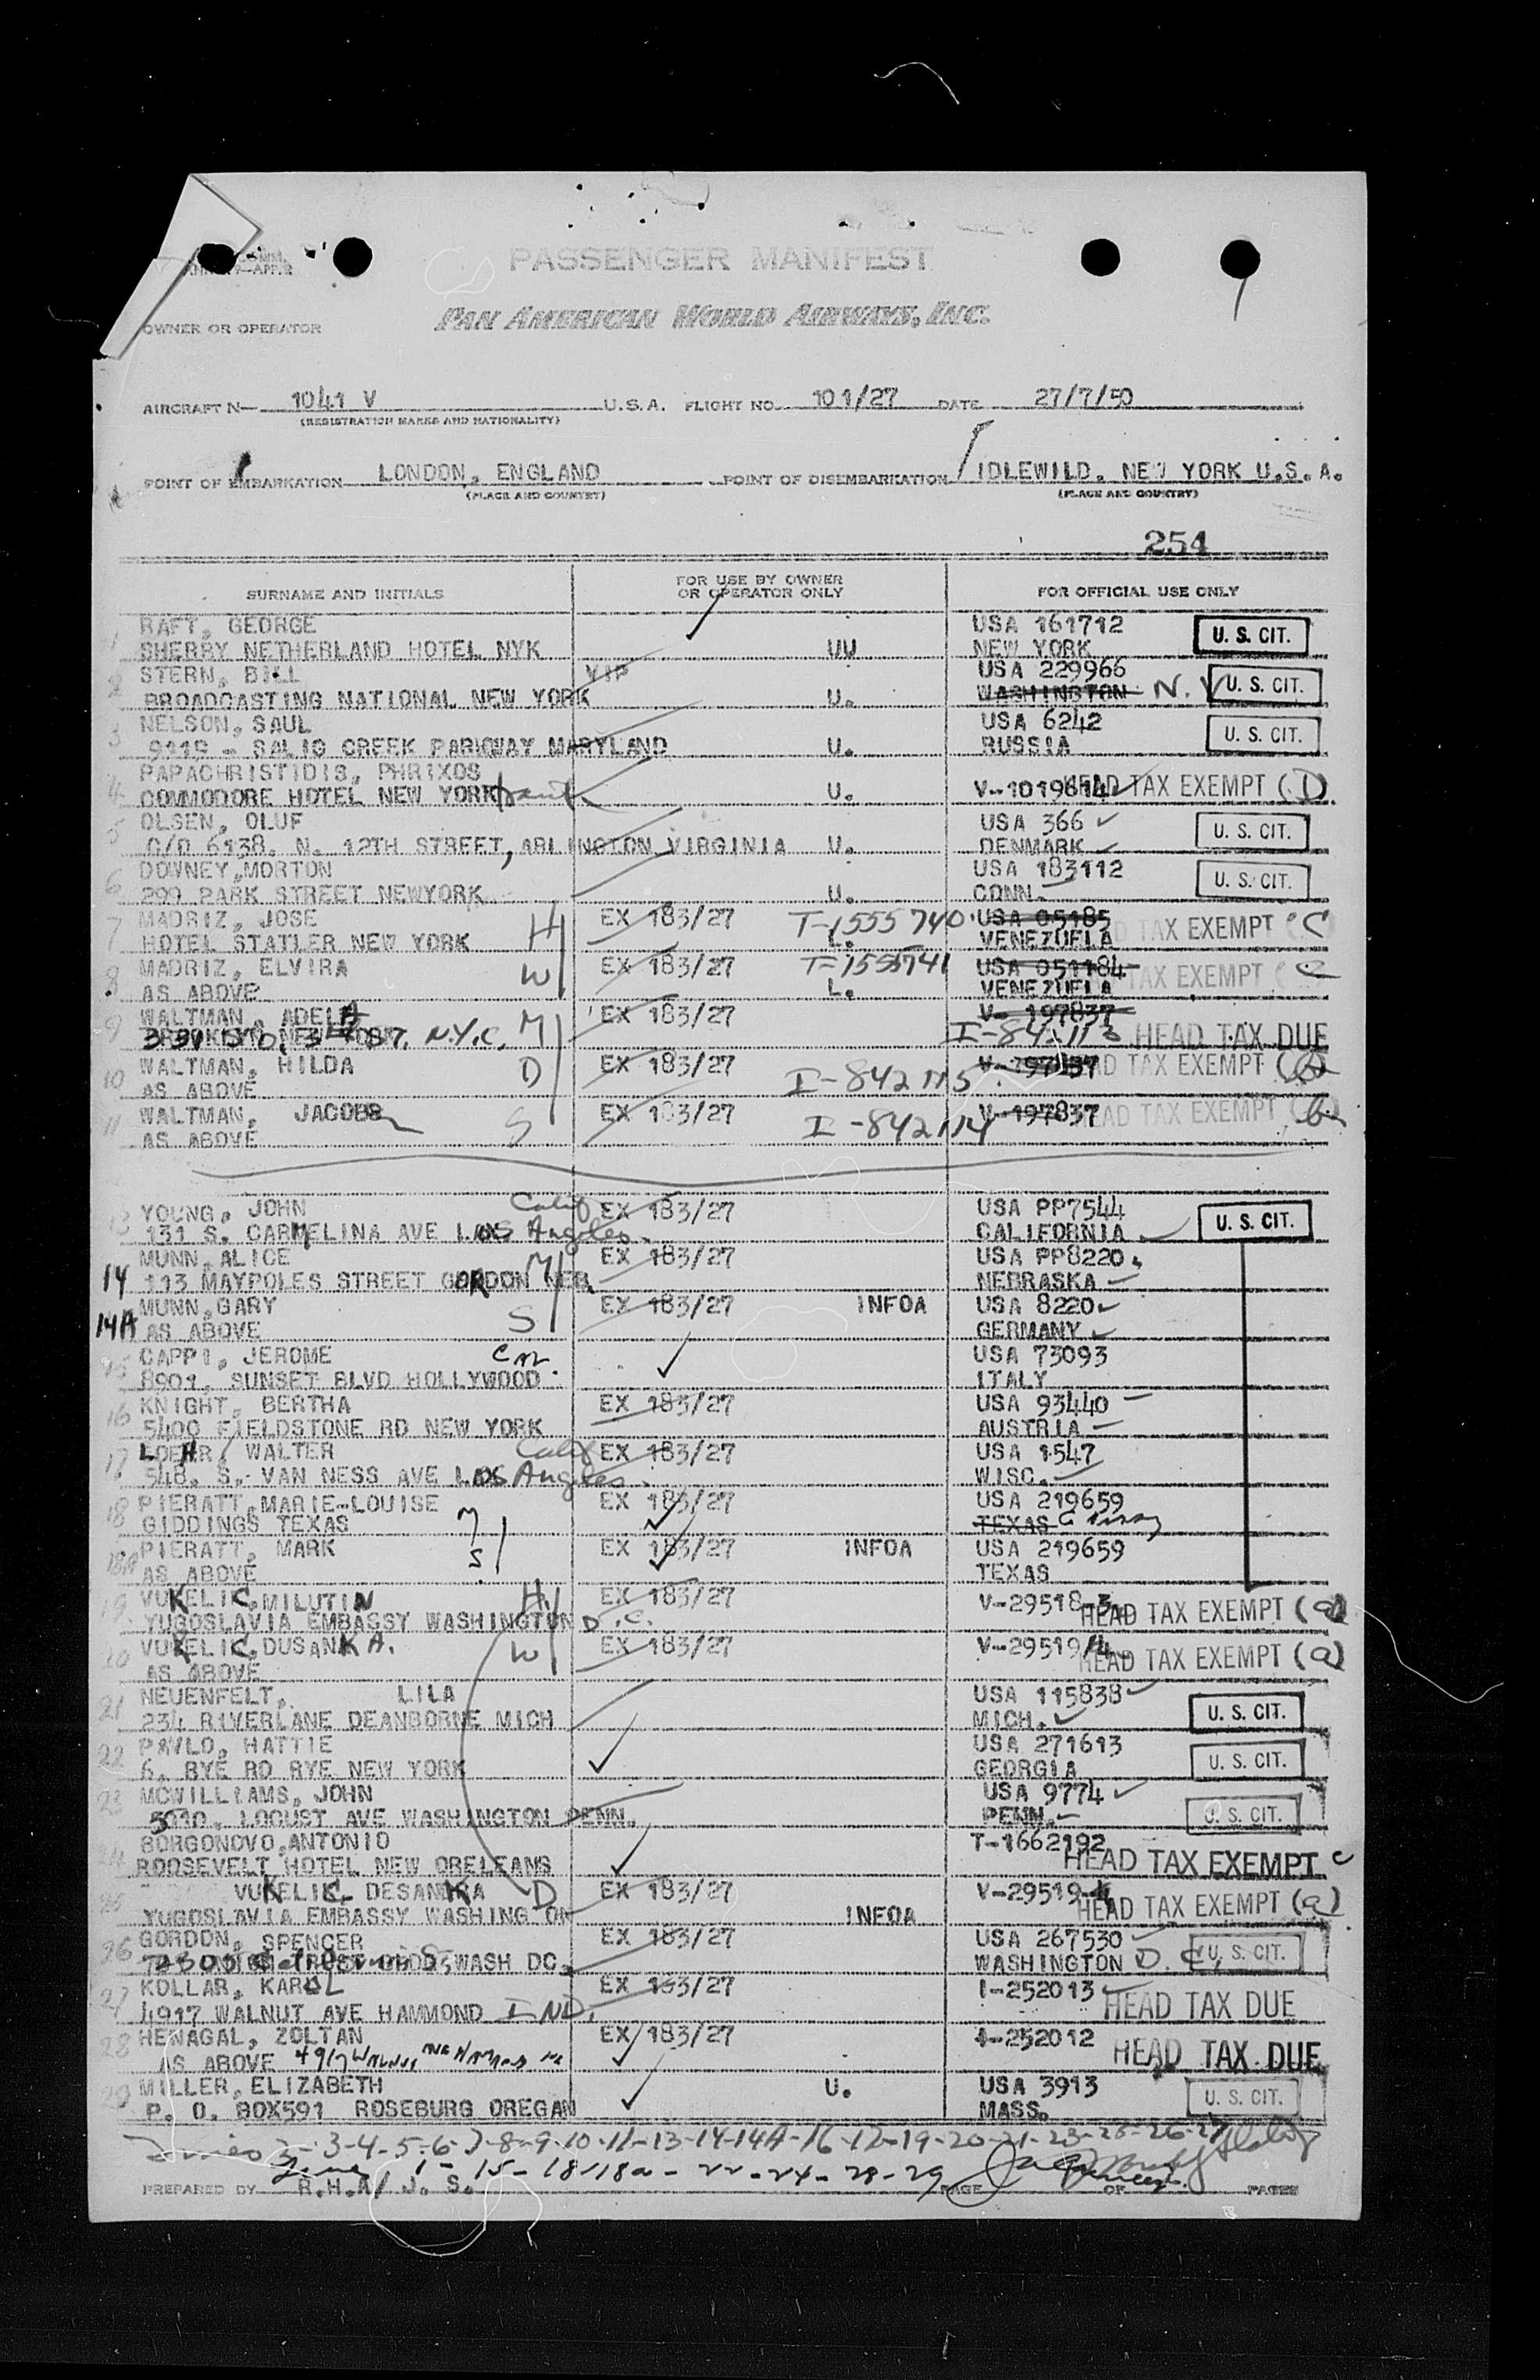 PASSENGER MANIFEST
PAN AMERICAN WORLD AIRWAYS, INC.
OWNER OR OPERATOR
AIRCRAFT N— 1041 V U.S.A. FLIGHT NO. 101/27 DATE 27/7/50
(REGISTRATION MARKS AND NATIONALITY)
POINT OF EMBARKATION LONDON, ENGLAND POINT OF DISEMBARKATION IDLEWILD. NEW YORK U.S.A.
(PLACE AND COUNTRY) (PLACE AND COUNTRY)
254
SURNAME AND INITIALS FOR USE BY OWNER OR OPERATOR ONLY FOR OFFICIAL USE ONLY
1 RAFT, GEORGE USA 161712 U. S. CIT.
SHERRY NETHERLAND HOTEL NYK UU NEW YORK
2 STERN, BILL VIP USA 229966
BROADCASTING NATIONAL NEW YORK U. WASHINGTON N.Y U. S. CIT.
3 NELSON, SAUL USA 6242
9119 - SALIG CREEK PARKWAY MARYLAND U. RUSSIA U. S. CIT.
4 PAPACHRISTIDIS, PHRIXOS
COMMODORE HOTEL NEW YORK U. V-101981 HEAD TAX EXEMPT (D)
5 OLSEN, OLUF USA 366
C/O 6138. N. 12TH STREET, ARLINGTON VIRGINIA U. DENMARK U. S. CIT.
6 DOWNEY, MORTON USA 183112
299 PARK STREET NEWYORK U. CONN. U. S. CIT.
7 MADRIZ, JOSE H EX 183/27 T-1555740 USA 05185
HOTEL STATLER NEW YORK L. VENEZUELA TAX EXEMPT C
8 MADRIZ, ELVIRA W EX 183/27 T-1555741 USA 051184
AS ABOVE L. VENEZUELA TAX EXEMPT C
9 WALTMAN, ADELA M EX 183/27 V- 197837
N.Y.C. I-842113 HEAD TAX DUE
10 WALTMAN, HILDA D EX 183/27 V-197837 HEAD TAX EXEMPT
AS ABOVE I-842115
11 WALTMAN, JACOB S EX 183/27 V-197837 HEAD TAX EXEMPT
AS ABOVE I-842114
13 YOUNG, JOHN Calif EX 183/27 USA PP7544
131 S. CARMELINA AVE LOS Angeles. CALIFORNIA U. S. CIT.
MUNN, ALICE M EX 183/27 USA PP8220
14 113 MAYPOLES STREET GORDON NEB. NEBRASKA
MUNN, GARY S EX 183/27 INFOA USA 8220
14A AS ABOVE GERMANY
15 CAPPI, JEROME CAL USA 73093
8901, SUNSET BLVD HOLLYWOOD ITALY
16 KNIGHT, BERTHA EX 183/27 USA 93440
5400 FIELDSTONE RD NEW YORK AUSTRIA
17 LOEHR, WALTER Calif EX 183/27 USA 1547
548. S. VAN NESS AVE LOS Angeles. WISC.
18 PIERATT, MARIE-LOUISE M EX 183/27 USA 219659
GIDDINGS TEXAS TEXAS
18A PIERATT, MARK S EX 183/27 INFOA USA 219659
AS ABOVE TEXAS
19 VUKELIC, MILUTIN H EX 183/27 V-29518 HEAD TAX EXEMPT (a)
YUGOSLAVIA EMBASSY WASHINGTON D.C.
20 VUKELIC, DUSANKA. W EX 183/27 V-29519 HEAD TAX EXEMPT (a)
AS ABOVE
21 NEUENFELT, LILA USA 115838
234 RIVERLANE DEANBORNE MICH MICH. U. S. CIT.
22 PAVLO, HATTIE USA 271613
6, RYE RD RYE NEW YORK GEORGIA U. S. CIT.
23 MCWILLIAMS, JOHN USA 9774
5010. LOCUST AVE WASHINGTON PENN. PENN. U. S. CIT.
24 BORGONOVO, ANTONIO T-1662192
ROOSEVELT HOTEL NEW ORELEANS HEAD TAX EXEMPT C
25 VUKELIC DESANKA D EX 183/27 V-29519 HEAD TAX EXEMPT (a)
YUGOSLAVIA EMBASSY WASHING ON INFOA
26 GORDON, SPENCER EX 183/27 USA 267530
WASH DC. WASHINGTON D.C. U. S. CIT.
27 KOLLAR, KAROL EX 183/27 I-252013 HEAD TAX DUE
4917 WALNUT AVE HAMMOND IND.
28 HEWAGAL, ZOLTAN EX 183/27 I-252012 HEAD TAX DUE
AS ABOVE
29 MILLER, ELIZABETH U. USA 3913
P. O. BOX591 ROSEBURG OREGAN MASS. U. S. CIT.
2-3-4-5-6-7-8-9-10-11-13-14-14A-16-17-19-20-21-23-25-26-27
1-15-18-18a-22-24-28-29
PREPARED BY R.H.A/ J. S. PAGE OF PAGES